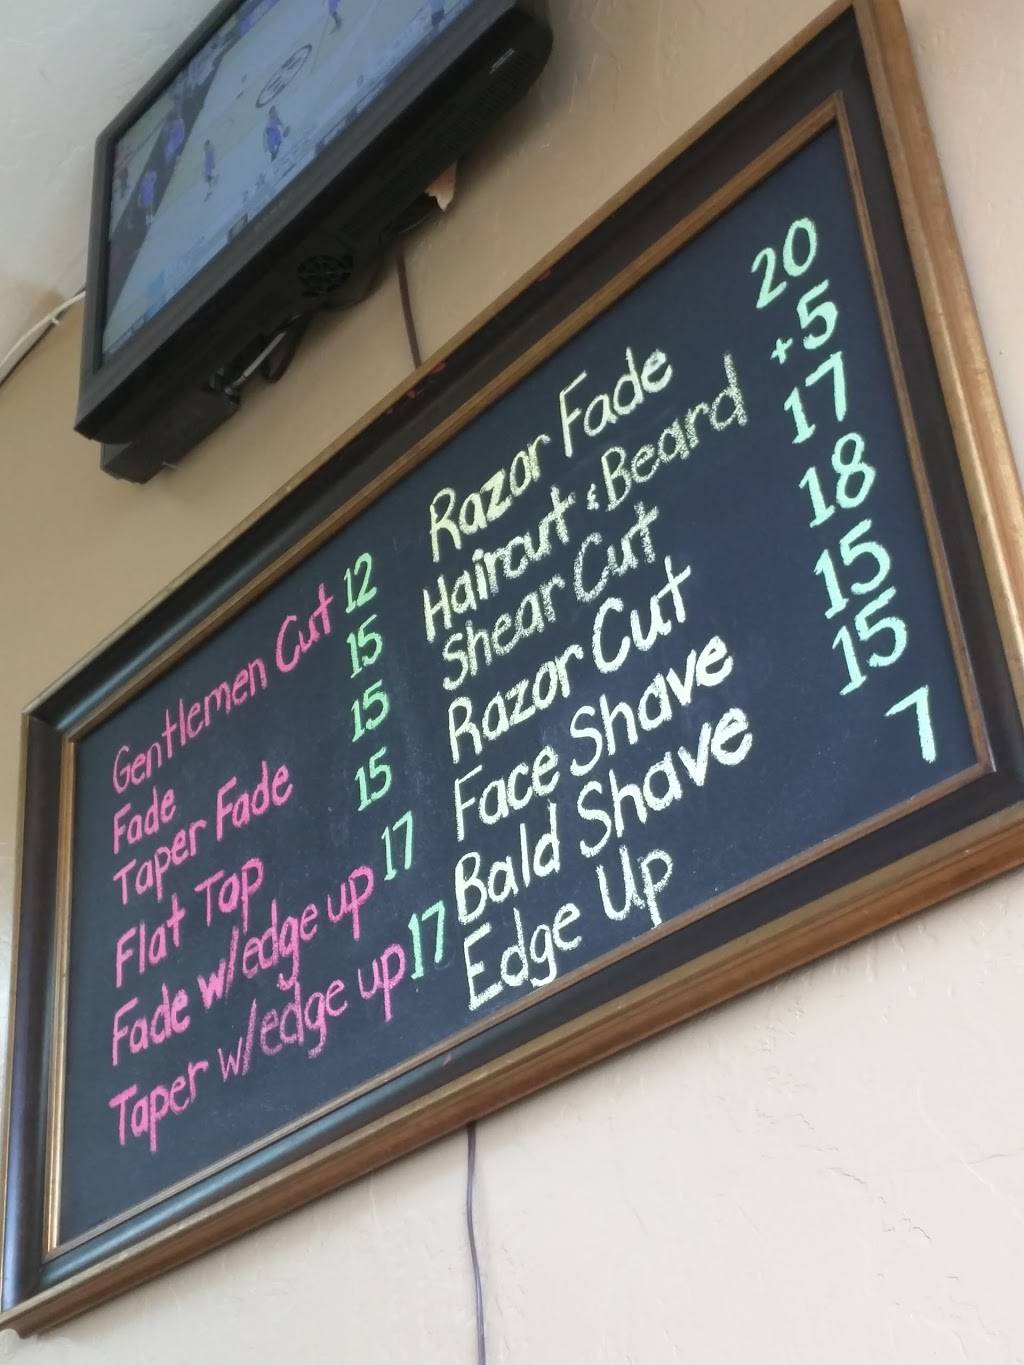 Gentlemen Cut 12
Fade 15
Taper Fade 15
Flat Top 15
Fade w/edge up 17
Taper w/edge up 17
Razor Fade 20
Haircut & Beard +5
Shear Cut 17
Razor Cut 18
Face Shave 15
Bald Shave 15
Edge Up 7